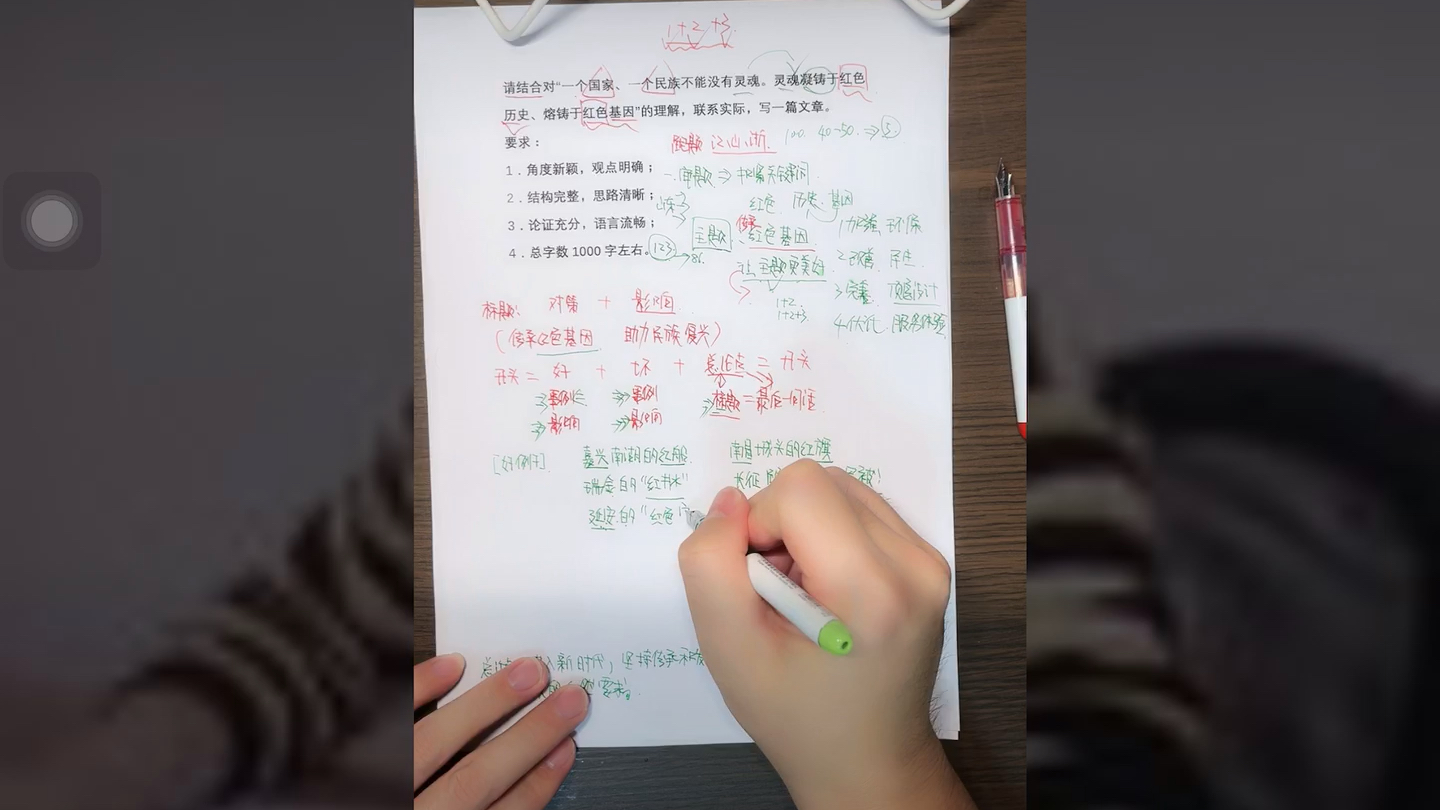 1+2+3
请结合对“一个国家、一个民族不能没有灵魂。灵魂凝铸于红色
历史、熔铸于红色基因”的理解，联系实际，写一篇文章。
要求：
1．角度新颖，观点明确；
2．结构完整，思路清晰；
3．论证充分，语言流畅；
4．总字数 1000 字左右。
跑题 江山浙
100 40-50 ⇒ ③
一.审题 ⇒ 抓紧关键词
红色 历史 基因
主题 传承红色基因
让主题更美好
1+2
1+2+3
1加强 环保
2改善 民生
3完善 顶层设计
4优化 服务体验
123 → 86
标题: 对策 + 影响
(传承红色基因 助力民族复兴)
开头 = 好 + 坏 + 总论点 = 开头
→ 事例 → 事例 → 标题 = 最后一句话
→ 影响 → 影响
[好例子] 嘉兴南湖的红船 南昌城头的红旗
瑞金的“红井水” 长征
延安的“红色
新时代，坚持传承和发
要求。